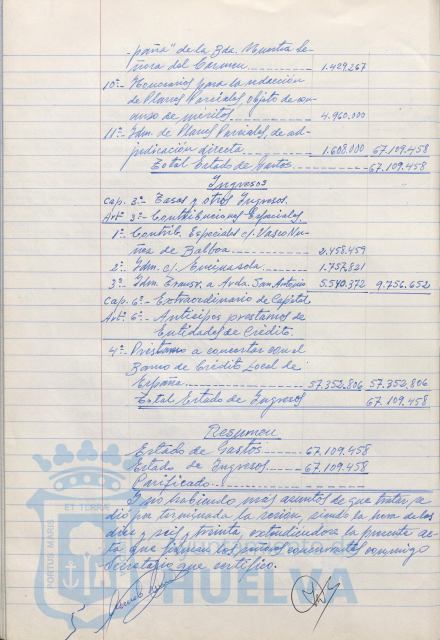 paña" de la Bda. Nuestra Se-
ñora del Carmen 1.429.267
10º- Honorarios para la redacción
de Planes Parciales objeto de con-
curso de méritos 4.960.000
11º- Idm. de Planes Parciales de ad-
judicación directa 1.608.000 67.109.458
Total Estado de Gastos 67.109.458
Ingresos
Cap. 3º- Tasas y otros Ingresos.
Artº 3º- Contribuciones Especiales.
1º- Contrib. Especiales c/. Vasco Nú-
ñez de Balboa 2.458.459
2º- Idm. c/. Encinasola 1.757.821
3º Idm. Transv. a Avda. San Antonio 5.540.372 9.756.652
Cap. 6º- Extraordinario de Capital
Artº 6º- Anticipos prestamos de
Entidades de Crédito.
4º- Préstamo a concertar con el
Banco de Crédito Local de
España 57.352.806 57.352.806
Total Estado de Ingresos 67.109.458
Resumen
Estado de Gastos 67.109.458
Estado de Ingresos 67.109.458
Y no habiendo más asuntos de que tratar, se
dió por terminada la sesión, siendo la hora de las
diez y seis y treinta, extendiéndose la presente ac-
ta que firman los señores concurrentes conmigo
Secretario que certifico.
PORTUS MARIS ET TERRAE
HUELVA